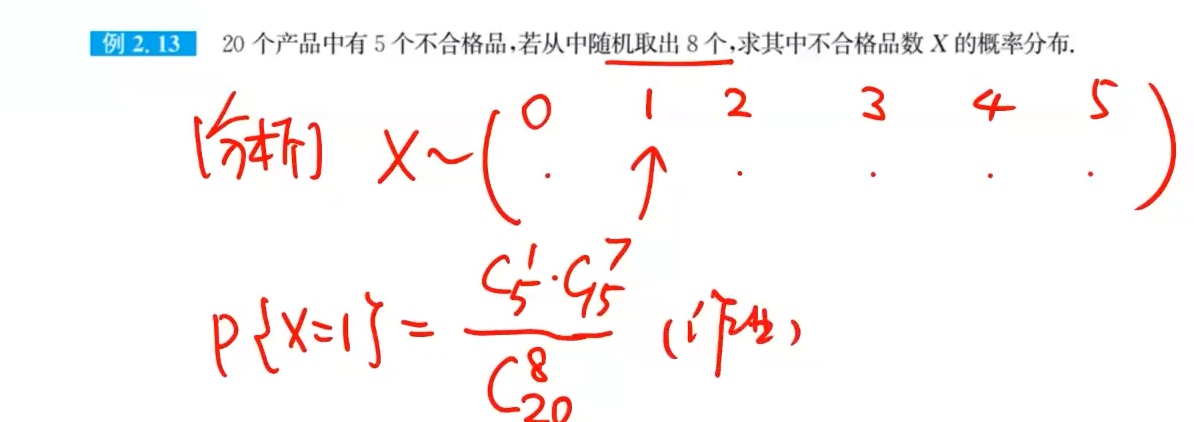 例 2.13 20 个产品中有 5 个不合格品,若从中随机取出 8 个,求其中不合格品数 X 的概率分布.
[分析] X~( 0 1 2 3 4 5 )
. ↑ . . . .
P{X=1} = C₅¹·C₁₅⁷ / C₂₀⁸